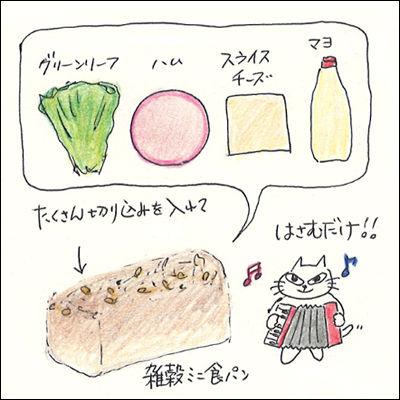 グリーンリーフ
ハム
スライス
チーズ
マヨ
たくさん切り込みを入れて
はさむだけ!!
雑穀ミニ食パン